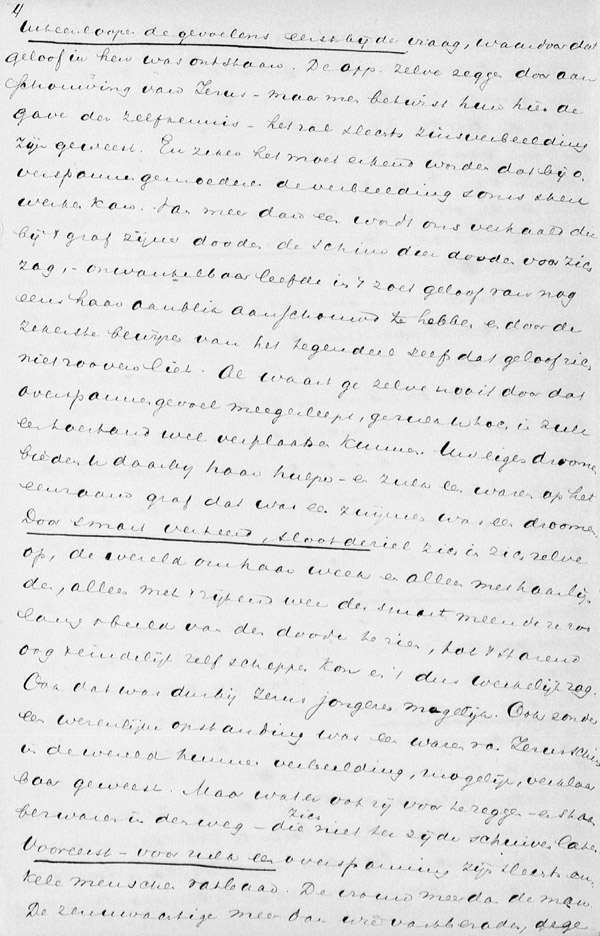 4
de gevoelens eerst bij de vraag, waardoor dat
geloof in hen was ontstaan. De app. zelve zeggen door aan
schouwing van Jezus - maar men betwist hun hier de
gave der zelfkennis - het zal slechts zinsverbeelding
zijn geweest. En zeker het moet erkend worden dat bij o
verspannen gemoederen de verbeelding soms sterk
werken kan. Van meer dan een wordt ons verhaald die
bij 't graf zijner dooden de schim dier dooden voor zich
zag, - onwankelbaar leefde in 't zoet geloof van nog
eens haar aanblik aanschouwd te hebben en door de
zekerste bewijzen van het tegendeel zelfs dat geloof zich
niet rooven liet. Al waart ge zelve nooit door dat
overspannen gevoel meegesleept, gevoel u hoe in zulk
een toestand wel verplaatsen kunnen.
bieden u daarbij haar hulpe - en zulk een waren op het
eenzaam graf dat was een was een droomen
Door smart verteerd, sloot de ziel zich in zich zelve
op, de wereld om haar week en alles met haar lij-
den, alleen met 't wee der smart meende ze zoo
lang 't beeld van den doode te zien, tot 't starend
oog 't eindelijk zelf scheppen kon en 't dus werkelijk zag.
Ook dat was dus bij Jezus jongeren mogelijk. Ook zonder
een wezenlijke opstanding was een waren van Jezus schim
in de wereld hunner verbeelding, mogelijk, verklaar
baar geweest. Maar wat er ook zij voor te zeggen - er staan
bezwaren in den weg - die zich niet ter zijde schuiven laten.
Vooreerst - voor zulk een overspanning zijn slechts en-
kele menschen vatbaar. De vrouw meer dan de man.
De zenuwachtige meer dan wie vastberaden, de ge